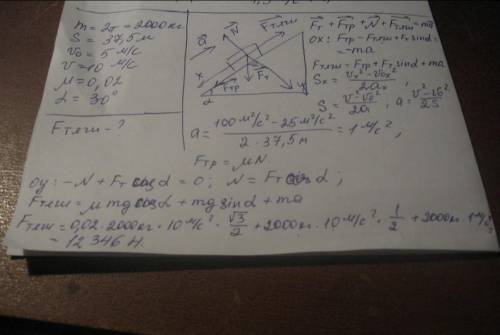 m = 2т = 2000кг
S = 37,5м
v₀ = 5 м/с
v = 10 м/с
μ = 0,02
α = 30°
Fтяги - ?
a⃗
N⃗
F⃗тяги
x
α
F⃗тр
F⃗т
y
F⃗т + F⃗тр + N⃗ + F⃗тяги = ma⃗
ox: Fтр - Fтяги + Fт sinα =
= -ma
Fтяги = Fтр + Fт sinα + ma
Sx = (vx² - v₀x²) / 2ax ;
S = (v² - v₀²) / 2a , a = (v² - v₀²) / 2S
a = (100 м²/с² - 25 м²/с²) / (2 · 37,5 м) = 1 м/с² ,
Fтр = μN
oy: -N + Fт cosα = 0 ; N = Fт cosα ;
Fтяги = μ mg cosα + mg sinα + ma
Fтяги = 0,02 · 2000кг · 10 м/с² · √3/2 + 2000кг · 10 м/с² · 1/2 + 2000кг · 1 м/с²
= 12346 Н.